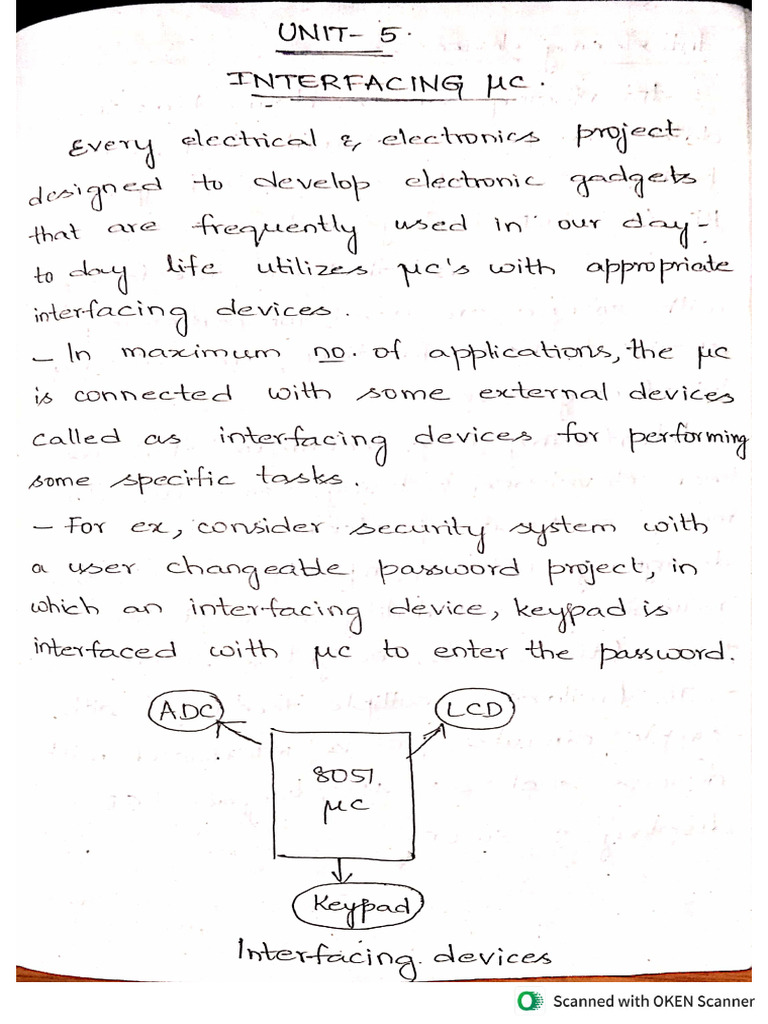 UNIT- 5.
INTERFACING μc.
Every electrical & electronics project
designed to develop electronic gadgets
that are frequently used in our day-
to day life utilizes μc's with appropriate
interfacing devices.
- In maximum no. of applications, the μc
is connected with some external devices
called as interfacing devices for performing
some specific tasks.
- For ex, consider security system with
a user changeable password project, in
which an interfacing device, keypad is
interfaced with μc to enter the password.
ADC LCD
8051.
μc
Keypad
Interfacing devices
Scanned with OKEN Scanner